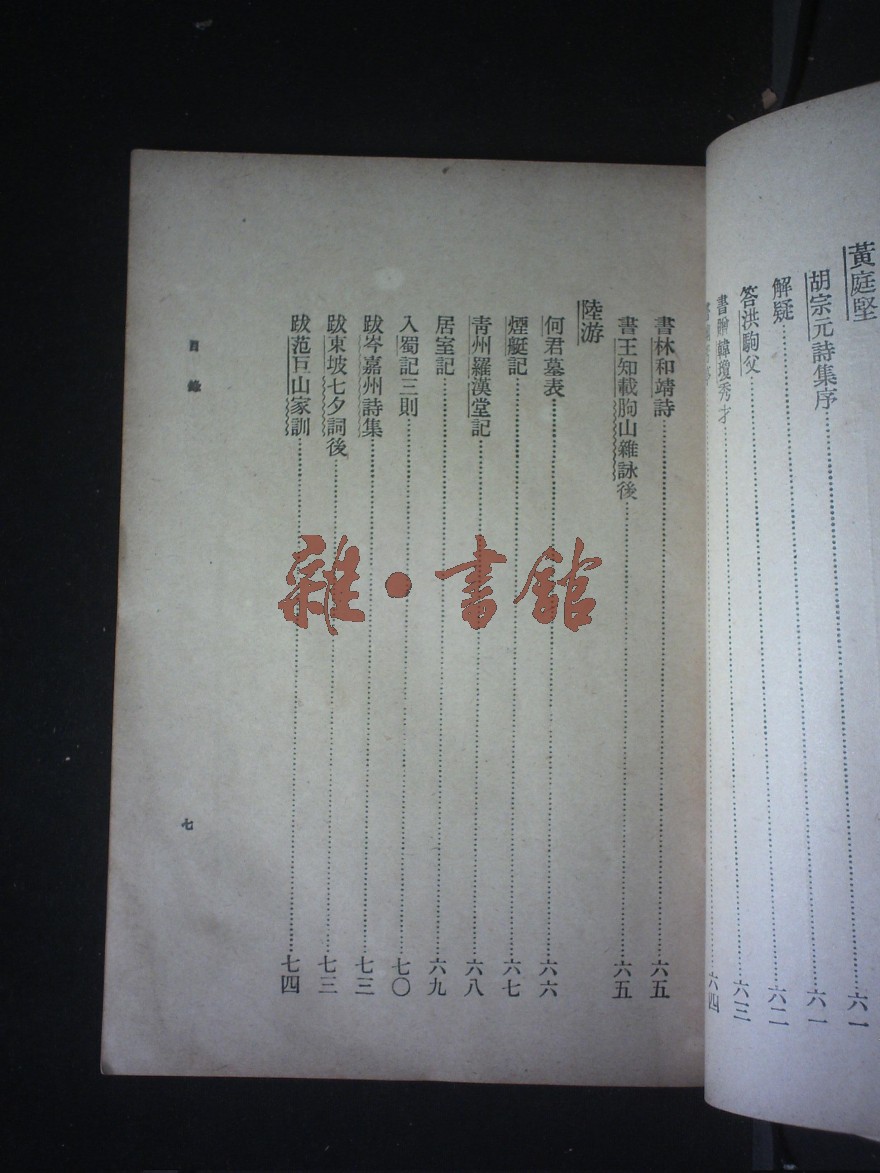 黃庭堅……六一
胡宗元詩集序……六一
解疑……六二
答洪駒父……六三
書贈韓瓊秀才……六四
書林和靖詩……六五
書王知載朐山雜詠後……六五
陸游
何君墓表……六六
煙艇記……六七
青州羅漢堂記……六八
居室記……六九
入蜀記三則……七〇
跋岑嘉州詩集……七三
跋東坡七夕詞後……七三
跋范巨山家訓……七四
目錄
七
雜·書館